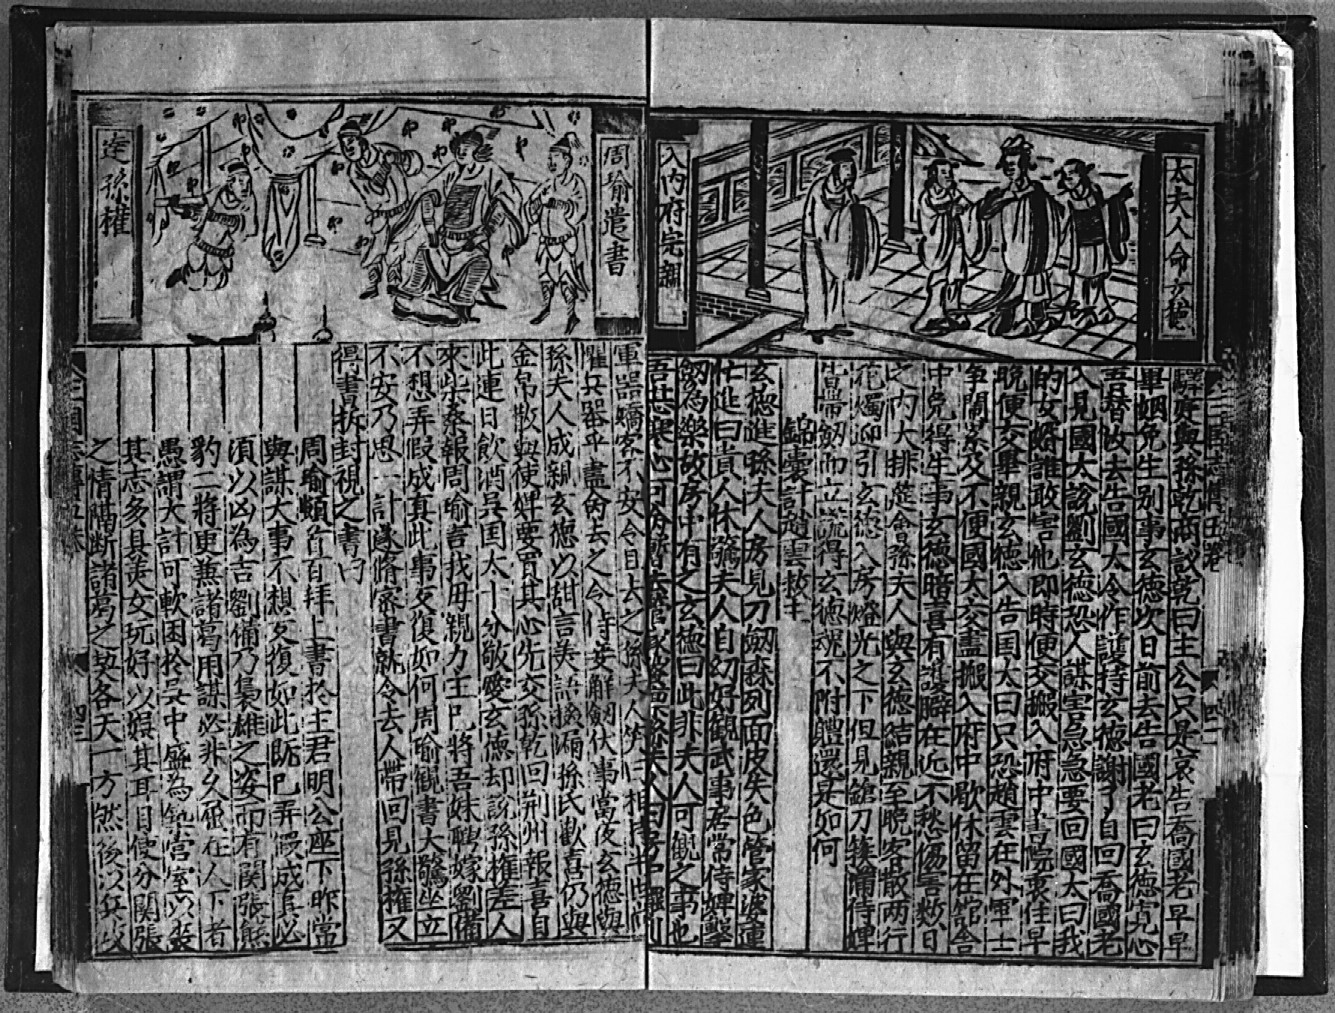 太夫人命玄德
入內府完親
驛庭與孫乾商議乾曰主公只是哀告喬國老早早
畢姻免生別事玄德次日前去告國老曰玄德寬心
吾替汝去告國太令作護持玄德謝了自回喬國老
入見國太說劉玄德恐人謀害急急要回國太曰我
的女婿誰敢害他即時便交搬入府中書院裏住早
晚便交畢親玄德入告国太曰只恐趙雲在外軍士
中免得生事玄德暗喜有
之內大排筵會孫夫人與玄德結親至晚客散两行
花燭迎引玄德入房燈光之下但見鎗刀簇滿侍婢
皆帶劒而立諕得玄德魂不附體還是如何
錦囊計趙雲救主
玄德進孫夫人房見刀劒森列面皮失色管家婆連
忙進曰貴人休驚夫人自幼好觀武事居常侍婢擊
劒為樂故房中有之玄德曰此非夫人可觀之事也
周瑜遣書
達孫權
軍器嬌客不安令且去之孫夫人笑
懼兵器乎盡令去之令侍妾解劒伏事當夜玄德與
孫夫人成親玄德以甜言美語孫氏歡喜仍與
金帛散與使婢要買其心先交孫乾回荆州報喜自
此連日飲酒吳国太十分敬愛玄德却說孫權差人
來柴桑報周瑜言我母親力主已將吾妹聘嫁劉備
不想弄假成真此事交復如何周瑜觀書大驚坐立
不安乃思一計遂脩密書就令去人帶回見孫權又
得書拆封視之書曰
周瑜頓首百拜上書於主君明公座下昨常
與謀大事不想交復如此既已弄假成真必
須以凶為吉劉備乃梟雄之姿而有関張熊
豹二將更兼諸葛用謀必非久屈在人下者
愚謂大計可軟困於吳中盛為築宮室以喪
其志多其美女玩好以娛其耳目使分関張
之情隔断諸葛之契各天一方然後以兵伐